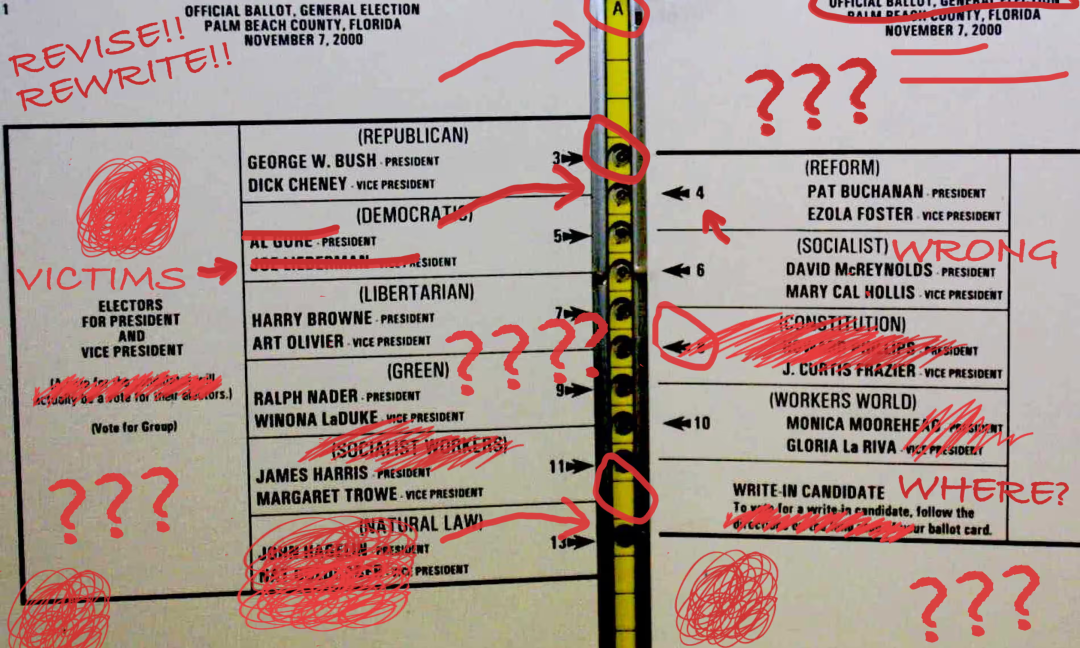 1
OFFICIAL BALLOT, GENERAL ELECTION
PALM BEACH COUNTY, FLORIDA
NOVEMBER 7, 2000
REVISE!!
REWRITE!!
A
OFFICIAL BALLOT, GENERAL ELECTION
PALM BEACH COUNTY, FLORIDA
NOVEMBER 7, 2000
???
(REPUBLICAN)
GEORGE W. BUSH - PRESIDENT
DICK CHENEY - VICE PRESIDENT
3
(DEMOCRATIC)
AL GORE - PRESIDENT
JOE LIEBERMAN - VICE PRESIDENT
5
VICTIMS
ELECTORS
FOR PRESIDENT
AND
VICE PRESIDENT
actually be a vote for their electors.)
(Vote for Group)
???
(LIBERTARIAN)
HARRY BROWNE - PRESIDENT
ART OLIVIER - VICE PRESIDENT
7
????
(GREEN)
RALPH NADER - PRESIDENT
WINONA LaDUKE - VICE PRESIDENT
9
(SOCIALIST WORKERS)
JAMES HARRIS - PRESIDENT
MARGARET TROWE - VICE PRESIDENT
11
(NATURAL LAW)
JOHN HAGELIN - PRESIDENT
VICE PRESIDENT
13
(REFORM)
4
PAT BUCHANAN - PRESIDENT
EZOLA FOSTER - VICE PRESIDENT
(SOCIALIST)
WRONG
6
DAVID McREYNOLDS - PRESIDENT
MARY CAL HOLLIS - VICE PRESIDENT
(CONSTITUTION)
PHILLIPS - PRESIDENT
J. CURTIS FRAZIER - VICE PRESIDENT
(WORKERS WORLD)
10
MONICA MOOREHEAD - PRESIDENT
GLORIA La RIVA - VICE PRESIDENT
WRITE-IN CANDIDATE
WHERE?
To vote for a write in candidate, follow the
your ballot card.
???